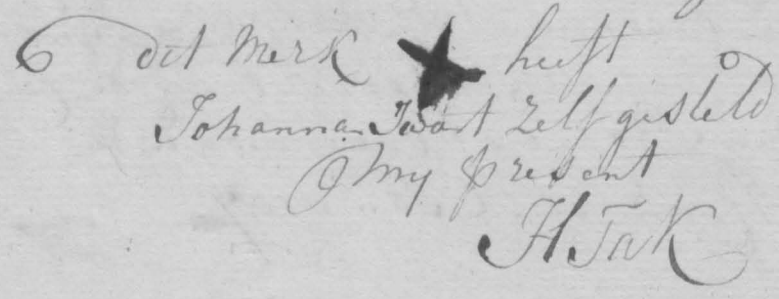 dit Merk heeft
Johanna Zwart Zelf gesteld
My present
H Tak